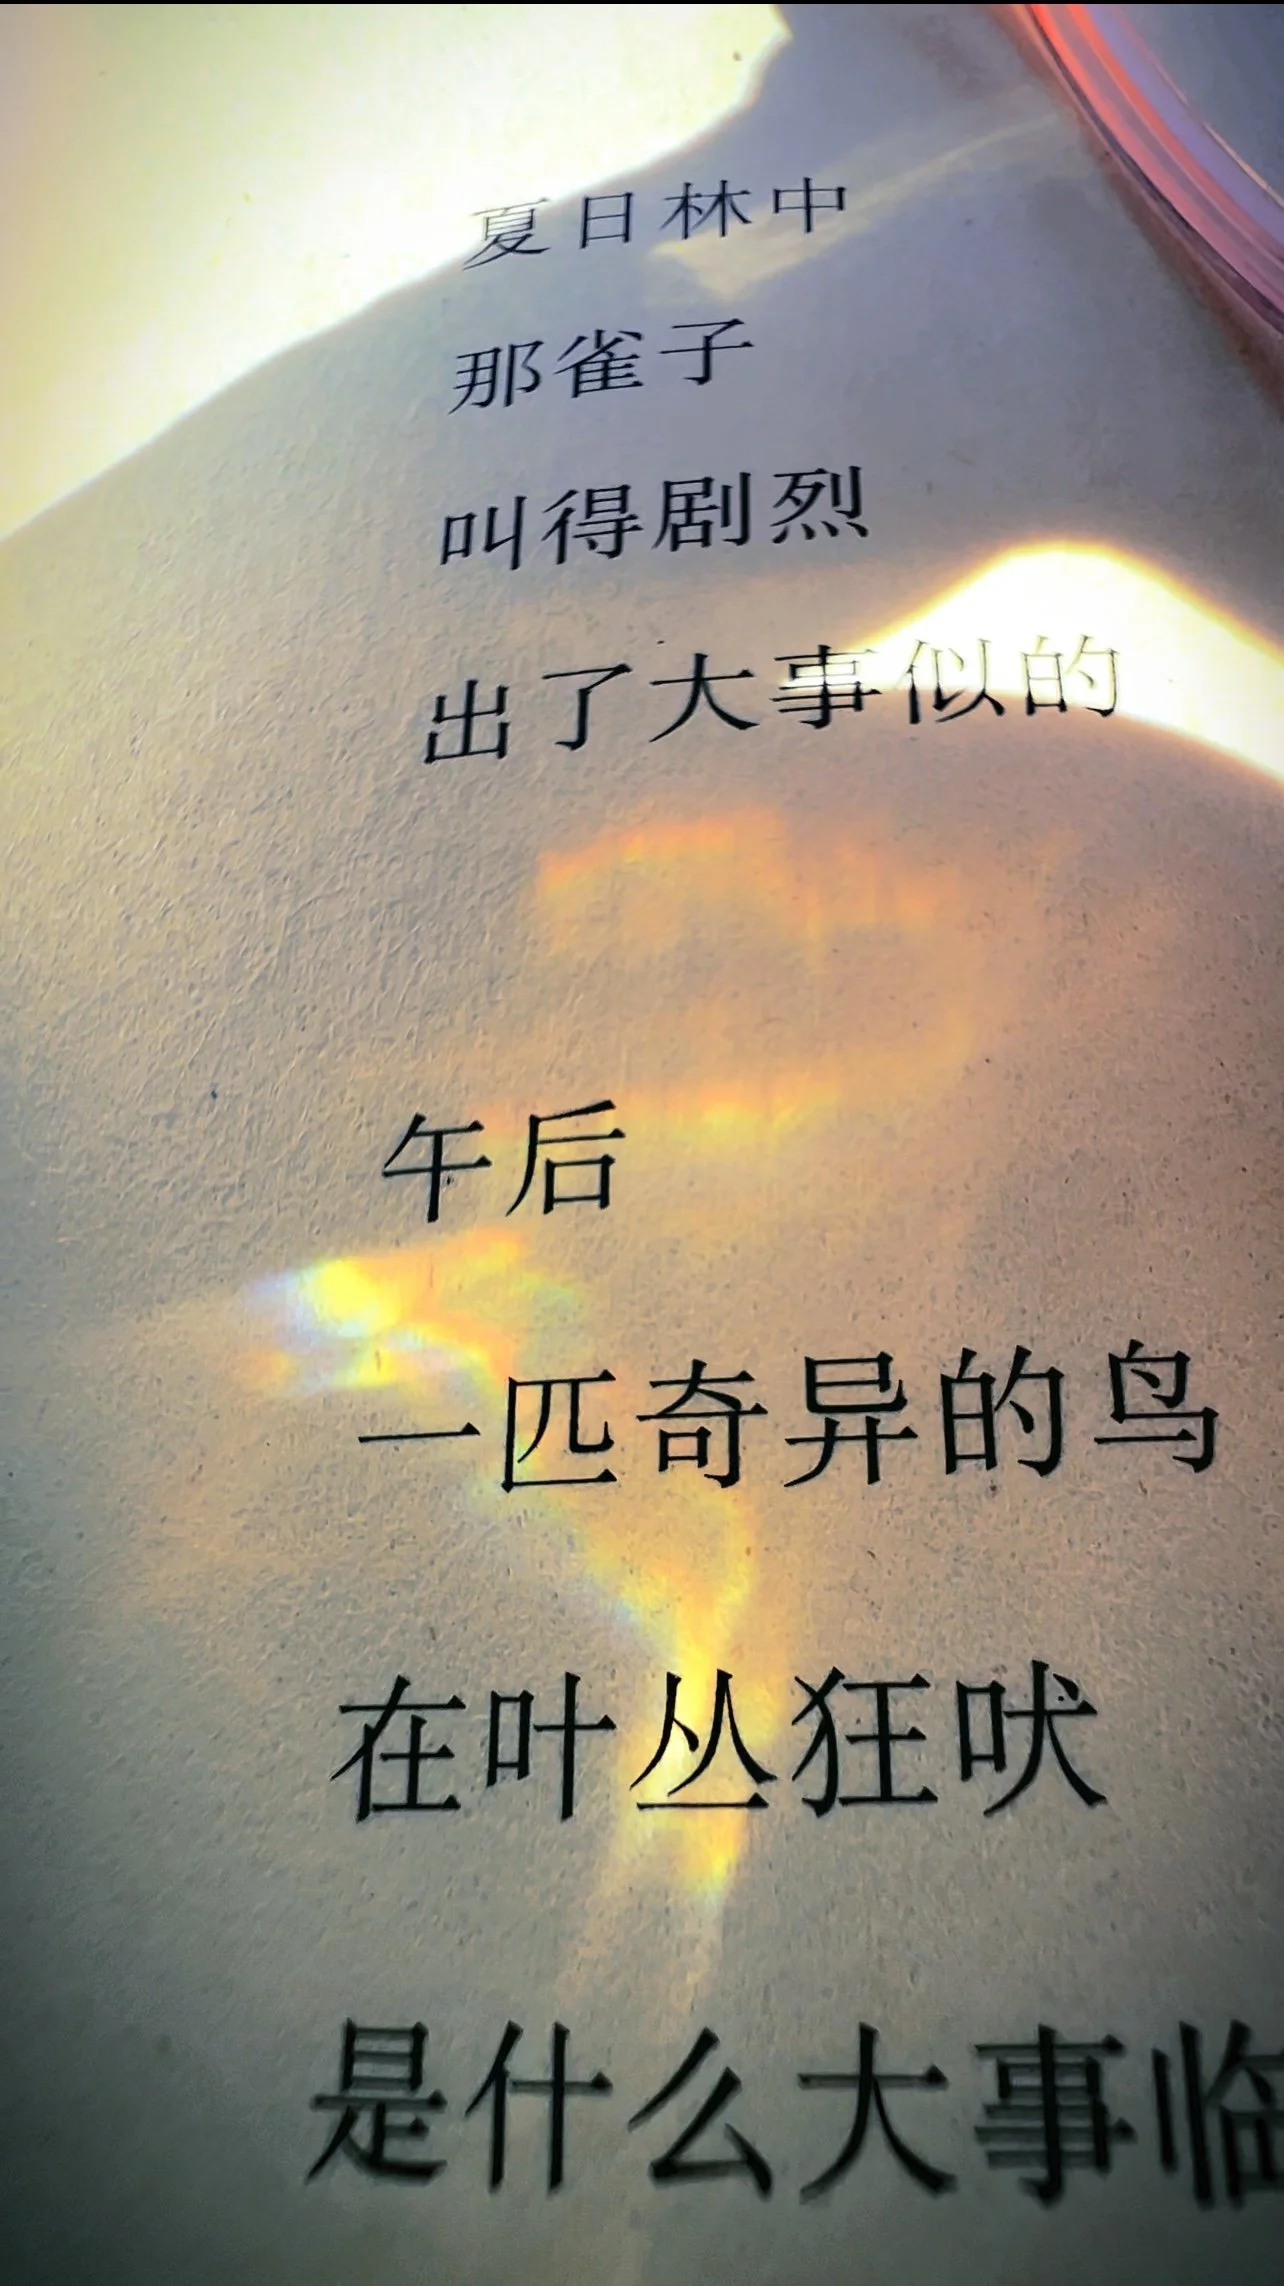 夏日林中
那雀子
叫得剧烈
出了大事似的
午后
一匹奇异的鸟
在叶丛狂吠
是什么大事临